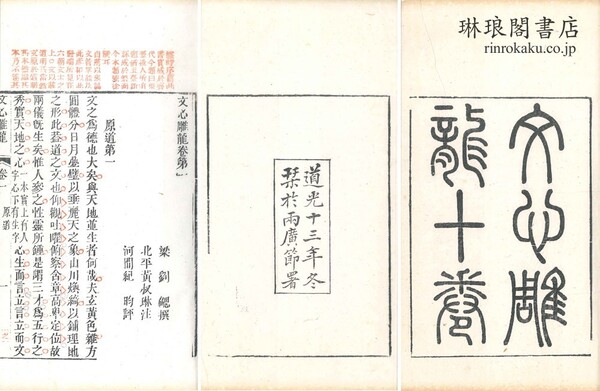 琳琅閣書店
rinrokaku.co.jp
文心雕
龍十卷
道光十三年冬
栞於兩廣節署
文心雕龍卷第一
梁劉勰撰
北平黃叔琳注
河間紀昀評
原道第一
文之為德也大矣與天地並生者何哉夫玄黃色雜方
圓體分日月疊璧以垂麗天之象山川煥綺以鋪理地
之形此葢道之文也仰觀吐曜俯察含章高卑定位故
兩儀旣生矣惟人參之性靈所鍾是謂三才為五行之
秀實天地之心一本實上有人字心下有生字心生而言立言立而文
文心雕龍 卷一 原道